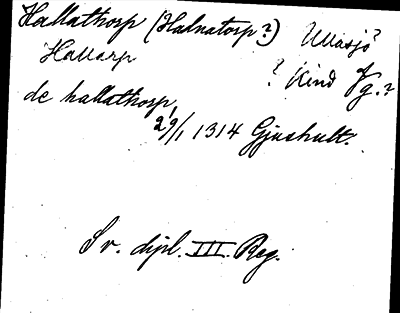 Hallathorp (Halnatorp?) Ullasjö?
Hallarp
? Kind Vg.?
de hallathorp,
29/1 1314 Gjushult.
Sv. dipl. III. Reg.